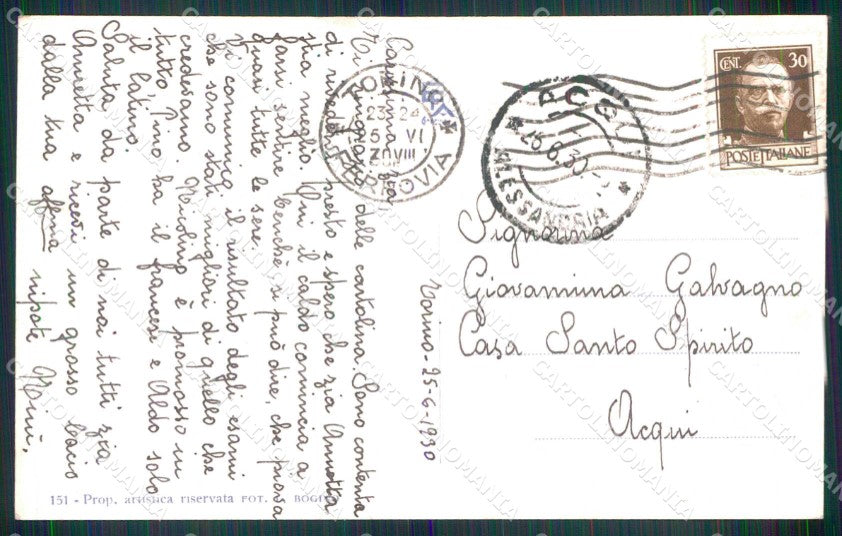 Carissima zia
Ti ringrazio della cartolina. Sono contenta
di rivederti presto e spero che zia Annetta
stia meglio. Qui il caldo comincia a
farsi sentire benchè si può dire, che piova
quasi tutte le sere.
Vi comunico il risultato degli esami
che sono stati migliori di quello che
credevamo. Nicolino è promosso in
tutto, Pino ha il francese e Aldo solo
il latino.
Saluta da parte di noi tutti zia
Annetta e ricevi un grosso bacio
dalla tua affma nipote Ninì.
Torino - 25-6-1930
TORINO
23-24
5 VI
FERROVIA
25.6.30
ALESSANDRIA
CENT. 30
POSTE ITALIANE
Signorina
Giovannina Galvagno
Casa Santo Spirito
Acqui
151 - Prop. artistica riservata FOT.
CARTOLINOMANIA